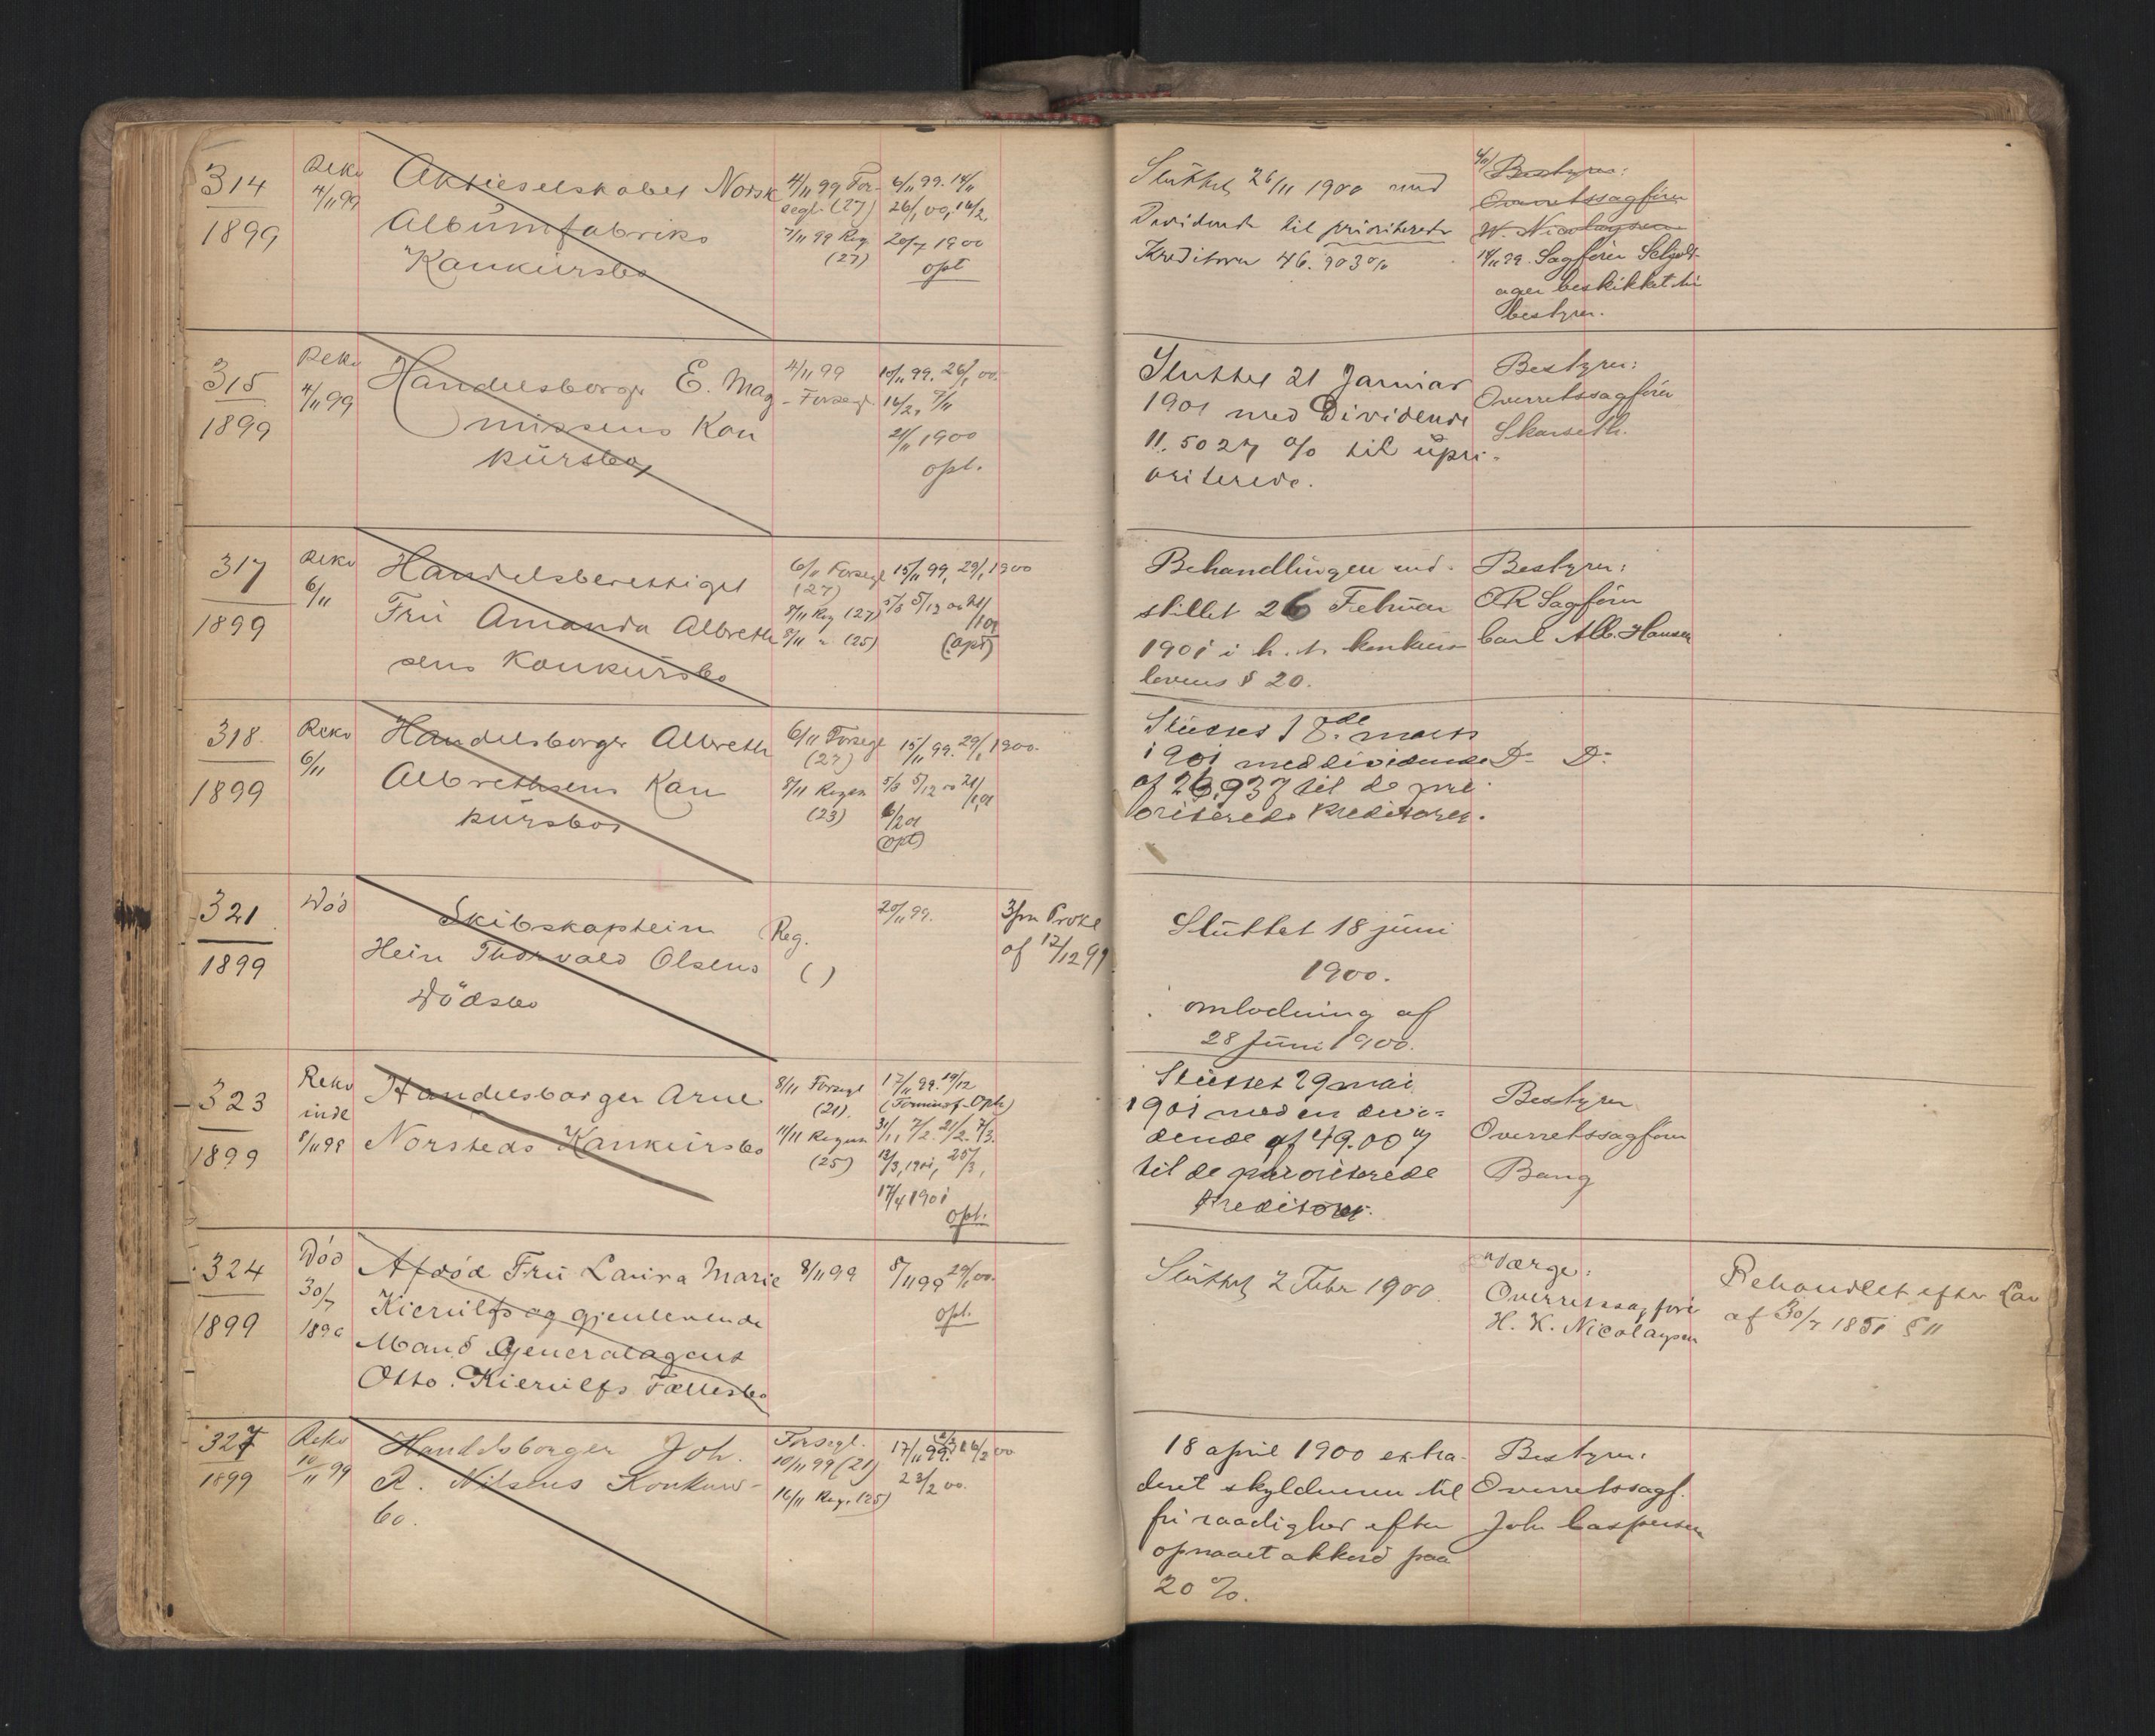 314
1899
Rekv
4/11 99
Aktieselskabet Norsk
Albumfabriks
Konkursbo
4/11 99 For-
segl. (27)
7/11 99 Reg
(27)
6/11 99. 14/11
26/1 00, 16/2,
20/7 1900
opt
Sluttet 26/11 1900 med
Dividende til prioriterede
Kreditorer 46.903%
4/11 Bestyrer:
Overretssagfører
W. Nicolaysen
14/11 99. Sagfører
beskikket til
bestyrer.
315
1899
Rekv
4/11 99
Handelsborger E. Mag
nussens Kon
kursbo
4/11 99
- Forsegl.
10/11 99. 26/1 00.
16/2, 7/11
21/11 1900
opt.
Sluttet 21 Januar
1901 med Dividende
11.5027 % til upri-
oriterede.
Bestyrer:
Overretssagfører
Skarseth.
317
1899
Rekv
6/11
Handelsberettiget
Fru Amanda Albreth
sens Konkursbo
6/11 Forsegl
(27)
8/11 Reg (27)
8/11 " (25)
15/11 99, 29/1 1900
(opt)
Behandlingen ind-
stillet 26 Februar
1901 i h. t. konkurs
lovens § 20.
Bestyrer:
OR Sagfører
Carl Alb. Hansen
318
1899
Rekv
6/11
Handelsborger Albreth
Albrethsens Kon
kursbo
6/11 Forsegl
(27)
8/11 Regen
(23)
15/11 99. 29/1 1900.
6/2 01
(opt)
Sluttet 18de marts
1901 med dividende
af 26,937 til de pri
oriterede Kreditorer.
D- D-
321
1899
Död
Skibskaptein
Hein Thorvald Olsens
Dödsbo
Reg.
( )
20/11 99.
3/m Prokl
af 12/12 99
Sluttet 18 juni
1900.
omlodning af
28 Juni 1900.
323
1899
Rekv
inde
8/11 99
Handelsborger Arne
Norsteds Konkursbo
8/11 Forsegl
(21).
11/11 Regen
(25)
17/11 99. 19/12
31/1, 7/2. 21/2. 7/3.
12/3, 1901, 25/3,
17/4 1901
opt.
Sluttet 29 mai
1901 med en divi-
dende af 49.00%
til de prioriterede
Kreditorer.
Bestyrer
Overretssagfører
Bang
324
1899
Död
30/7
Afdöd Fru Laura Marie
Kierulfs og gjenlevende
Mand Generalagent
Otto Kierulfs Fællesbo
8/11 99
8/11 99 29/1 00.
opt.
Sluttet 2 Febr 1900.
Værge:
Overretssagfører
H. K. Nicolaysen
Behandlet efter Lov
af 30/7 1851 § 11
327
1899
Rekv
10/11 99
Handelsborger Joh.
R. Nilsens Konkurs-
bo.
Forsegl.
10/11 99 (21)
16/11 Reg. (25)
17/11 99. 16/2 00
23/2 00.
18 april 1900 extra-
deret skyldneren til
fri raadighed efter
opnaaet akkord paa
20 %.
Bestyrer:
Overretssagf.
Joh Caspersen